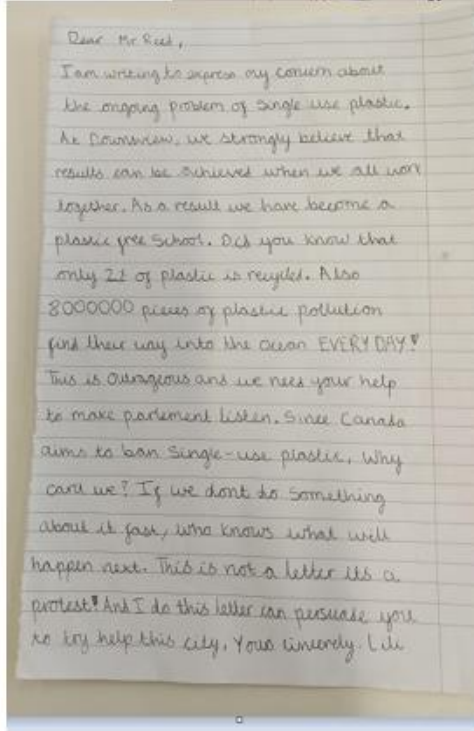 Dear Mr Reed,
I am writing to express my concern about
the ongoing problem of single use plastic.
At Downsview, we strongly believe that
results can be achieved when we all work
together. As a result we have become a
plastic free School. Did you know that
only 21 of plastic is recycled. Also
8000000 pieces of plastic pollution
find their way into the ocean EVERY DAY!
This is outrageous and we need your help
to make parlement listen. Since Canada
aims to ban Single-use plastic, Why
cant we? If we dont do Something
about it fast, who knows what will
happen next. This is not a letter its a
protest! And I do this letter can persuade you
to try help this city. Yours sincerely. Lili